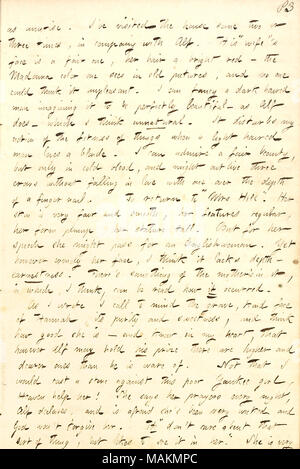 83
as unwise. I've visited the house some two or
three times, in company with Alf. His "wife's"
face is a fair one, her hair a bright red — the
Madonna color one sees in old pictures, and no one
could think it unpleasant. I can fancy a dark haired
man imagining it to be perfectly beautiful — as Alf
does — which I think unnatural. It disturbs my
notion of the fitness of things when a light haired
man loves a blonde. I can admire a fair beauty,
but only in cold blood, and might outlive three
crows without falling in love with one over the depth
of a finger nail. To return to Mrs Hill. Her
skin is very fair and smooth, her features regular,
her form plump, her stature tall. But for her
speech she might pass for an Englishwoman. Yet
however comely her face, I think it lacks depth —
earnestness. There's something of the mother in it,
in which, I think, can be read how it occurred.
As I wrote I call to mind the grave, kind face
of Hannah, its purity and sweetness, and think
how good she is — and know in my heart, that
however Alf may hold his prize there are higher and
dearer ones than he is aware of. Not that I
would cast a stone against this poor Yankee girl,
Heaven help her! She says her prayers every night,
Alf declares, and is afraid she's been very wicked and
God won't forgive her. "I don't care about that
sort of thing, but like to see it in her." She is very
alamy
Image ID: MAKMPC
www.alamy.com